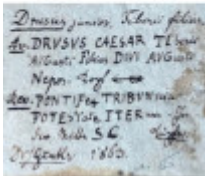 Drusus junior. Tiberii filius.
Av. DRVSVS CAESAR TI berii
AVGusti Filius DIVI AVGusti
Nepos.
Rev. PONTIFex TRIBVNicia
POTESTate ITERum
S.C.
1863.